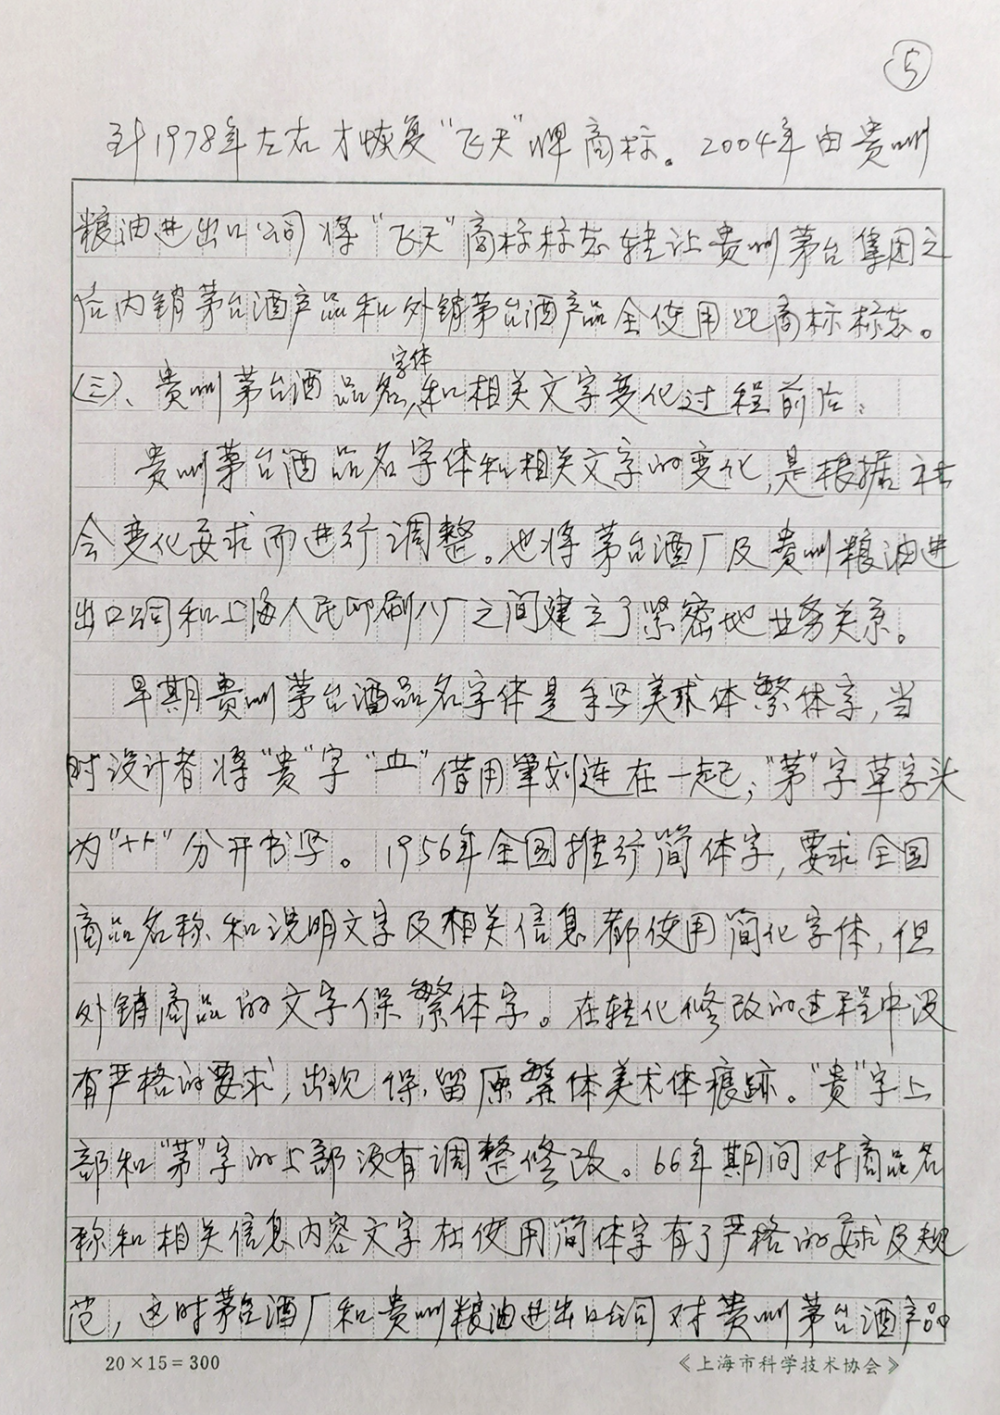 ⑤
到1978年左右才恢复“飞天”牌商标。2004年由贵州
粮油进出口公司将“飞天”商标标志转让贵州茅台集团之
后内销茅台酒产品和外销茅台酒产品全使用此商标标志。
(三)、贵州茅台酒品名字体和相关文字变化过程前后:
贵州茅台酒品名字体和相关文字的变化,是根据社
会变化要求而进行调整。也将茅台酒厂及贵州粮油进
出口公司和上海人民印刷八厂之间建立了紧密地业务关系。
早期贵州茅台酒品名字体是手写美术体繁体字,当
时设计者将“贵”字“亠”借用笔划连在一起;“茅”字草字头
为“十十”分开书写。1956年全国推行简体字,要求全国
商品名称和说明文字及相关信息都使用简化字体,但
外销商品的文字保繁体字。在转化修改的过程中没
有严格的要求,出现保留原繁体美术体痕迹。“贵”字上
部和“茅”字的上部没有调整修改。66年期间对商品名
称和相关信息内容文字在使用简体字有了严格的要求及规
范,这时茅台酒厂和贵州粮油进出口公司对贵州茅台酒产品
20×15=300
《上海市科学技术协会》